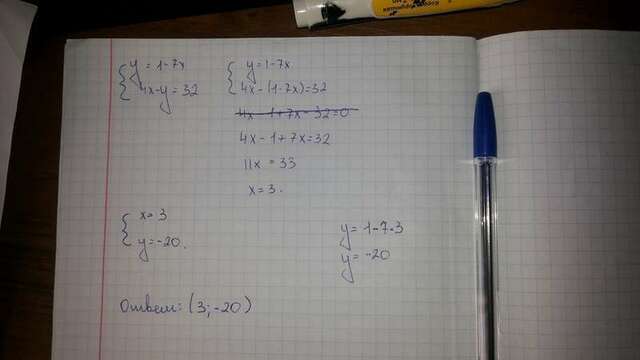 y = 1-7x
4x-y = 32
y = 1-7x
4x-(1-7x)=32
4x-1+7x-32=0
4x-1+7x=32
11x = 33
x = 3.
x = 3
y = -20.
y = 1-7·3
y = -20
Ответ: (3; -20)